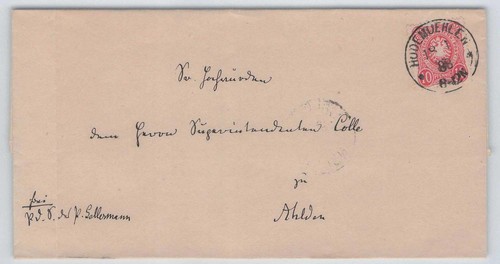 HUDEMUEHLEN
86
6-8N
10
Sr. Hochwürden
dem Herrn Superintendenten Cölle
zu
Ahlden
frei
p. d. S. des P. Gellermann